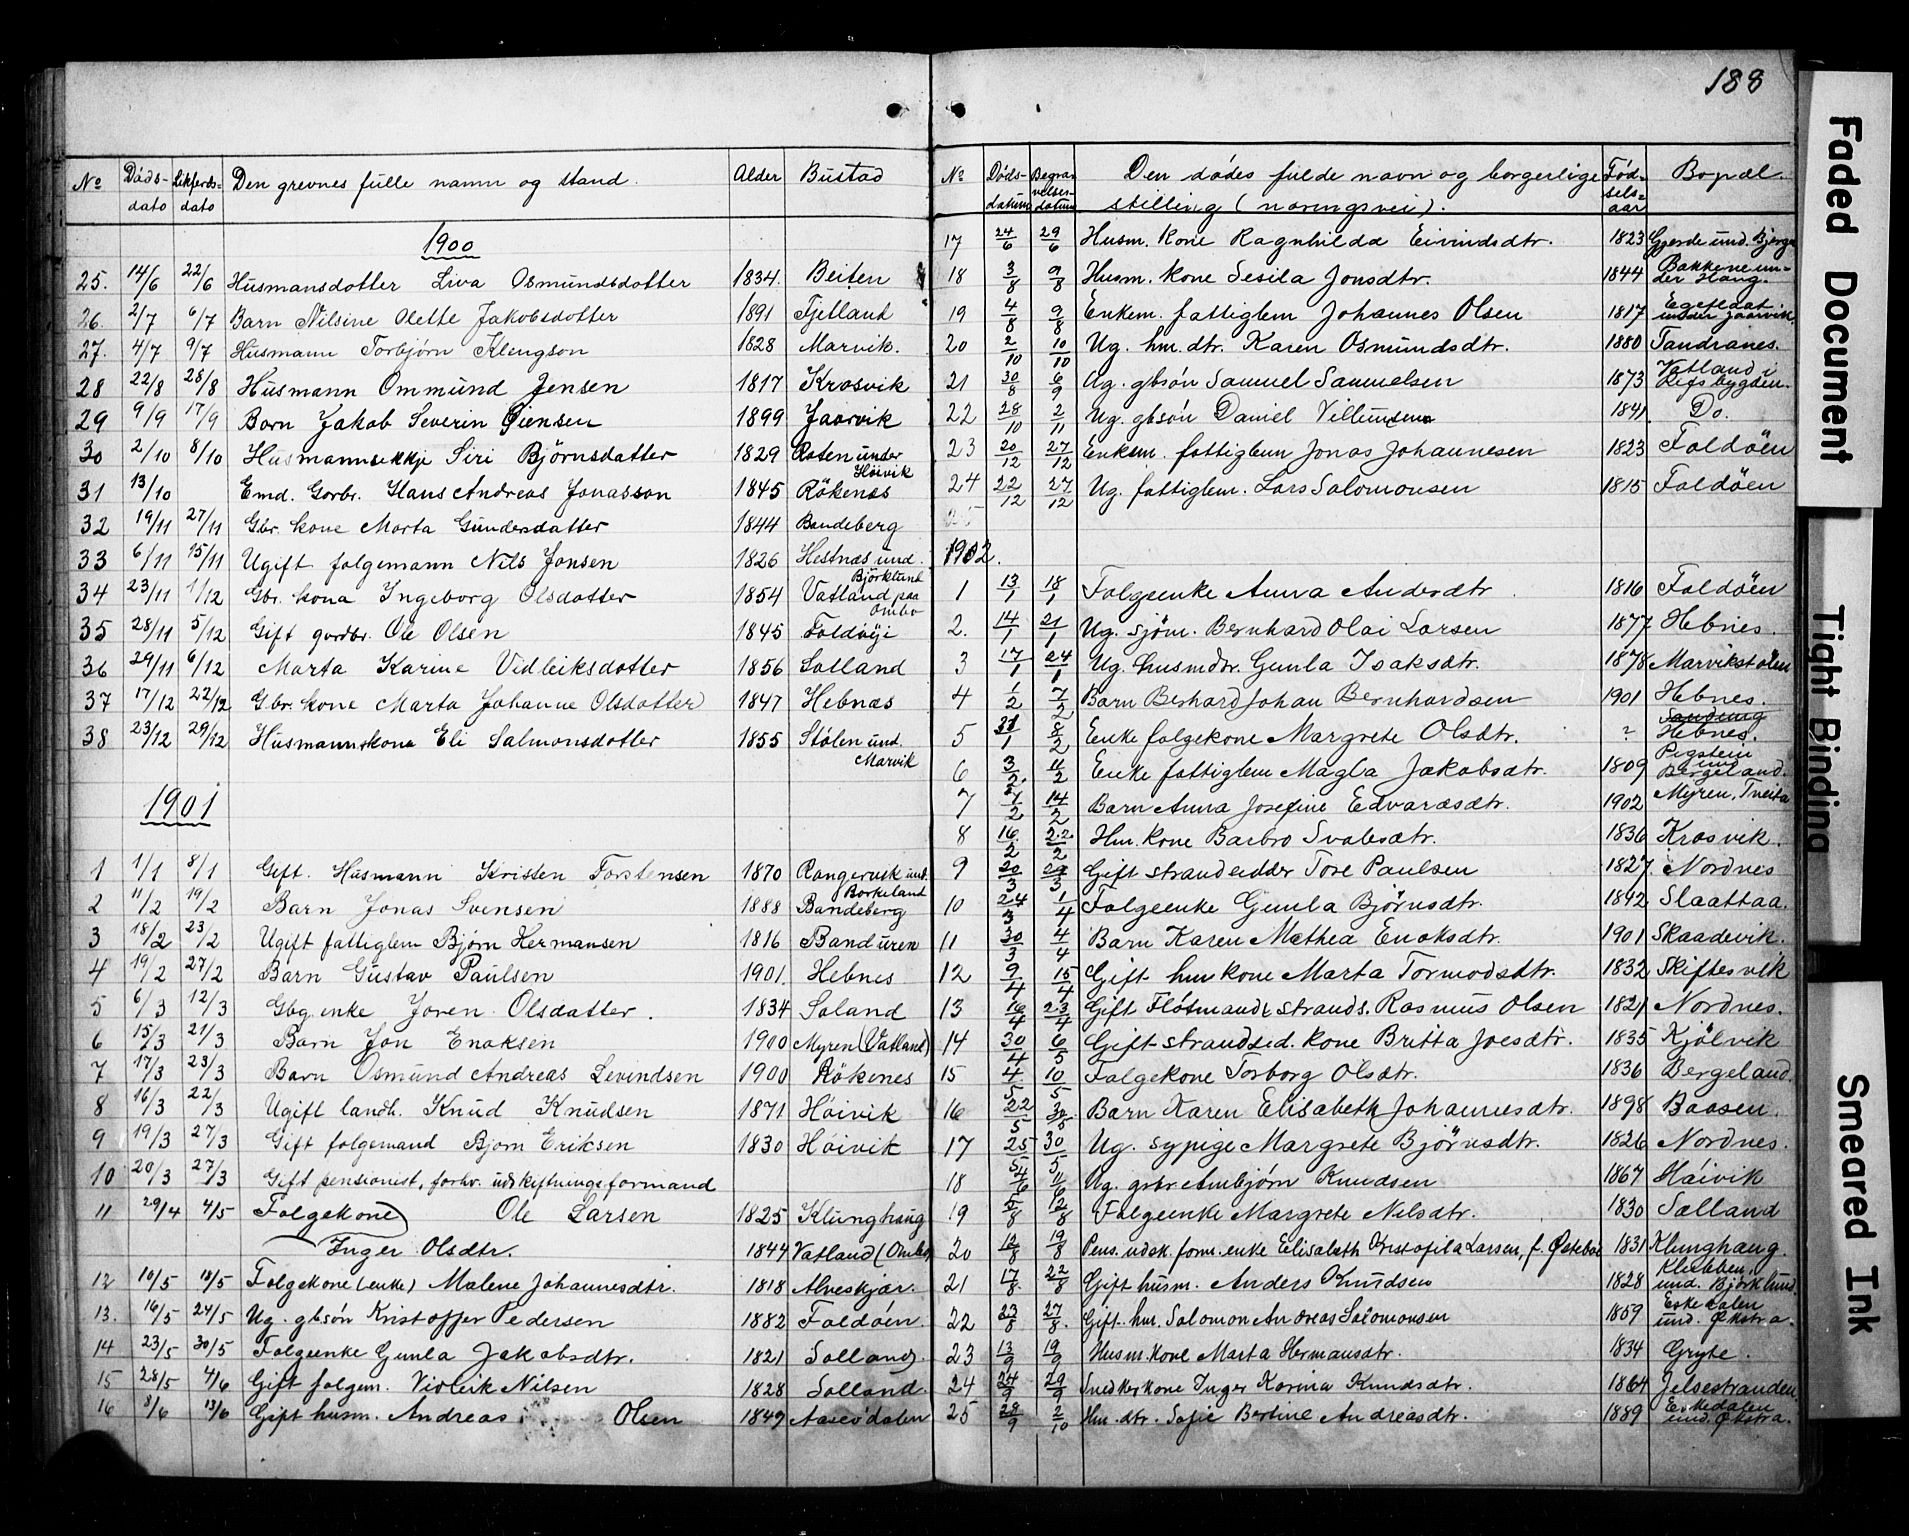 188
Nº Døds-dato Likferds-dato Den grevnes fulle namn og stand. Alder Bustad
1900
25. 14/6 22/6 Husmansdotter Liva Osmundsdotter 1834. Beiten
26. 2/7 6/7 Barn Nilsine Olette Jakobsdotter 1891 Fjetland
27. 4/7 9/7 Husmann Torbjørn Klengson 1828 Marvik.
28 22/8 28/8 Husmann Ommund Jensen 1817 Krosvik
29 9/9 17/9 Born Jakob Severin Eiensen 1899 Jaarvik
30 2/10 8/10 Husmannsekkje Siri Björnsdatter 1829 Roten under Höivik
31 13/10 Emd. Gorbr. Hans Andreas Jonasson 1845 Rökenes
32 19/11 27/11 Gbr. kone Marta Gundersdatter 1844 Bandeberg
33 6/11 15/11 Ugift folgemann Nils Jonsen 1826 Hestnæs und. Björklund
34 23/11 1/12 Gbr. kona Ingeborg Olsdotter 1854 Vatland paa Ombo
35 28/11 5/12 Gift gordbr. Ole Olsen 1845 Foldöji
36 29/11 6/12 Marta Karine Vidleiksdotter 1856 Solland
37 17/12 22/12 Gbr. kone Marta Johanne Olsdotter 1847 Hebnæs
38 23/12 29/12 Husmannskona Eli Salmonsdotter 1855 Stölen und. Marvik
1901
1 1/1 8/1 Gift. Husmann Kristen Torstensen 1870 Rangervik und. Borkeland
2 11/2 19/2 Barn Jonas Svensen 1888 Bandeberg
3 18/2 23/2 Ugift fattiglem Bjørn Hermansen 1816 Banduren
4 19/2 27/2 Barn Gustav Paulsen 1901. Hebnes
5 6/3 12/3 Gbg. enke Joren Olsdatter. 1834 Soland
6 15/3 21/3 Barn Jon Enoksen 1900 Myren (Vatland)
7 17/3 23/3 Barn Osmund Andreas Levindsen 1900 Rökenes
8 16/3 22/3 Ugift landh. Knud Knudsen 1871 Höivik
9 19/3 27/3 Gift folgemand Bjorn Eriksen 1830 Höivik
10 20/3 27/3 Gift pensionist, forhv. udskiftningsformand
Ole Larsen 1825 Klunghaug
11 29/4 4/5 Folgekone
Inger Olsdtr. 1844 Vatland (Ombo)
12 10/5 18/5 Folgekone (enke) Malene Johannesdtr. 1818 Alveskjær.
13. 16/5 24/5 Ug. gbsøn Kristoffer Pedersen 1882 Foldöen.
14 23/5 30/5 Folgeenke Gunla Jakobsdtr. 1821 Solland
15 28/5 4/6 Gift folgem. Vidleik Nilsen 1828 Solland.
16 8/6 13/6 Gift husm. Andreas Olsen 1849 Aasevdalen
Nº Døds-datum Begravelses-datum Den dødes fulde navn og borgerlige stilling (næringsvei). Fød-sels-aar Bopæl.
17 24/6 29/6 Husm. kone Ragnhilda Eivindsdtr. 1823 Gjerde und. Bjerga
18 3/8 9/8 Husm. kone Sesila Jonsdtr. 1844 Bakkene under Haug.
19 4/8 9/8 Enkem. fattiglem Johannes Olsen 1817 under Jaarvik.
20 2/10 10/10 Ug. hm. dtr. Karen Osmundsdtr. 1880 Tandranes.
21 30/8 6/9 Ug. gbsøn Samuel Samuelsen 1873 Vatland i Lefsbygden.
22 28/10 2/11 Ug. gbsön Daniel Villumsen 1841 Do.
23 20/12 27/12 Enkem. fattiglem Jonas Johannesen 1823 Foldöen
24 22/12 27/12 Ug. fattiglem. Lars Salomonsen 1815 Foldöen
25
1902.
1 13/1 18/1 Folgeenke Anna Andersdtr. 1816 Foldöen
2. 14/1 21/1 Ug. sjöm. Bernhard Olai Larsen 1877 Hebnes.
3 17/1 24/1 Ug. husmdtr. Gunla Isaksdtr. 1878 Marvikstølen
4 1/2 7/2 Barn Berhard Johan Bernhardsen 1901 Hebnes.
5 31/1 8/2 Enke folgekone Margrete Olsdtr. ? Sandvig Hebnes.
6 3/2 11/2 Enke fattiglem Magla Jakobsdtr. 1809 Pigstein und Bergeland.
7 7/2 14/2 Barn Anna Josefine Edvardsdtr. 1902 Myren, Tveita
8 16/2 22/2 Hm. kone Barbro Svalesdtr. 1836 Krosvik.
9 20/3 27/3 Gift strandsidder Tore Paulsen 1827 Nordnes
10 24/3 1/4 Folgeenke Gunla Björnsdtr. 1842 Slaattaa.
11 30/3 4/4 Barn Karen Mathea Enoksdtr. 1901 Skaadevik.
12 9/4 15/4 Gift hmkone Marta Tormodsdtr. 1832 Skiftesvik
13 16/4 23/4 Gift Fløtmand & strands. Rasmus Olsen 1821 Nordnes.
14 30/4 6/5 Gift strandsid. kone Britta Joesdtr. 1835 Kjölvik
15 4/5 10/5 Folgekone Torborg Olsdtr. 1836 Bergeland.
16 22/5 30/5 Barn Karen Elisabeth Johannesdtr. 1898 Baasen.
17 25/5 30/5 Ug. sypige Margrete Bjørnsdtr. 1826 Nordnes.
18 4/6 11/6 Ug. grbr. Ambjörn Knudsen 1867 Höivik
19 5/8 12/8 Folgeenke Margrete Nilsdtr. 1830 Sælland
20 12/8 19/8 Pens. udsk. form. enke Elisabeth Kristofila Larsen, f. Østebø 1831 Klunghaug.
21 17/8 22/8 Gift husm. Anders Knudsen 1828 Kleibben, und. Björklund.
22 23/8 27/8. Gift. hm. Salomon Andreas Salomonsen 1859 Eskedalen und. Økstra.
23 13/9 19/9 Husm. kone Marta Hermansdtr. 1834 Gryte.
24 24/9 29/9 Snedkerkone Inger Karina Knudsdtr. 1864 Jelsestranden
25 28/9 2/10 Hm. dtr. Sofie Bertine Andreasdtr. 1889 Eskedalen und. Økstra.
Faded Document
Tight Binding
Smeared Ink